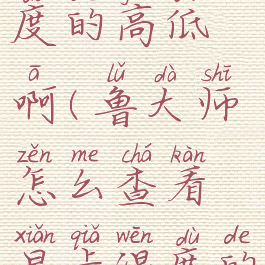 度的高低
ā lǔ dà shī
啊(鲁大师
zěn me chá kàn
怎么查看
xiǎn qiǎ wēn dù de
显卡温度的